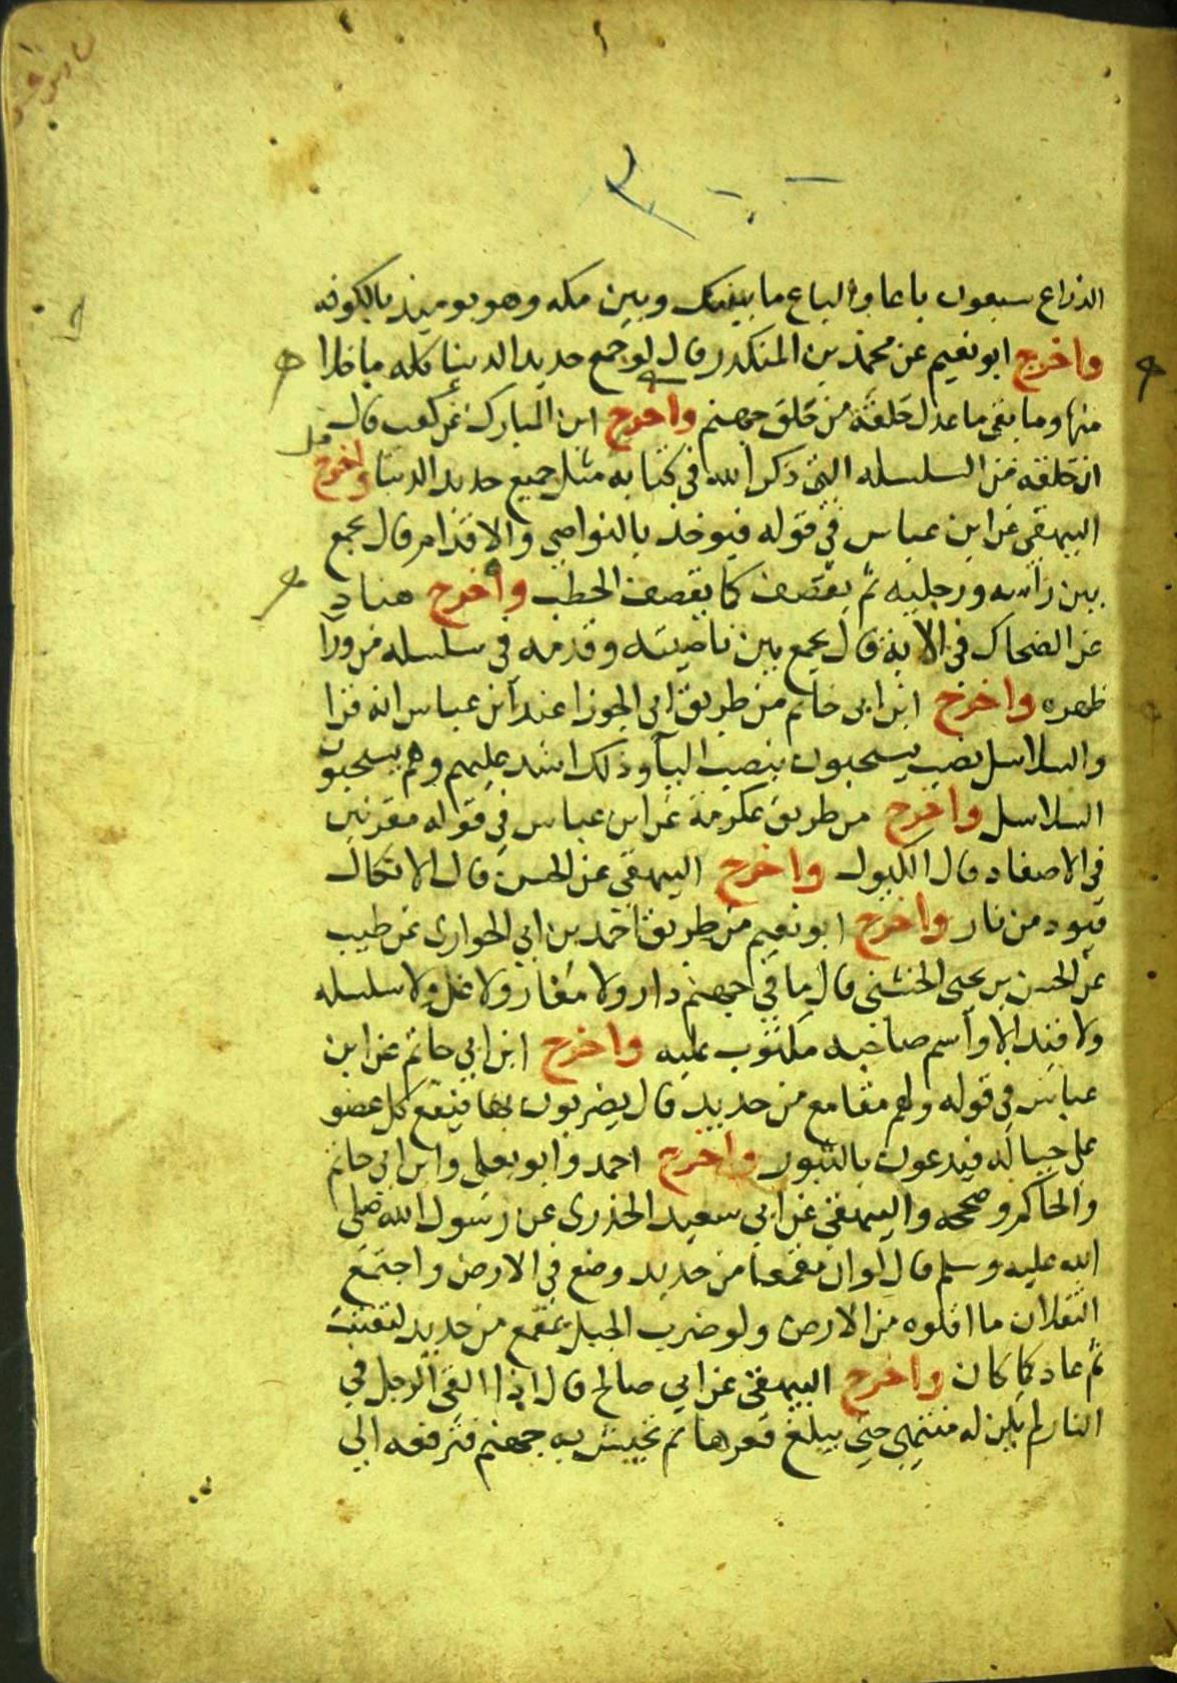 الذراع سبعون باعا والباع ما بينك وبين مكه وهو يوميذ بالكوفه
واخرج ابو نعيم عن محمد بن المنكدر قال لو جمع حديد الدنيا كله ما خلا
منها وما بقى ما عدل حلقة من حلق جهنم واخرج ابن المبارك عن كعب قال
ان حلقه من السلسله التى ذكر الله في كتابه مثل جميع حديد الدنيا واخرج
البيهقي عن ابن عباس في قوله فيوخذ بالنواصي والاقدام قال يجمع
بين راسه ورجليه ثم يقصف كما يقصف الحطب واخرج هناد
عن الضحاك في الاية قال يجمع بين ناصيته وقدمه في سلسله من ورا
ظهره واخرج ابن ابى حاتم من طريق ابى الجوزا عن ابن عباس انه قرا
والسلاسل نصب يسحبون بنصب اليا وذلك اشد عليهم وهم يسحبون
السلاسل واخرج من طريق عكرمة عن ابن عباس في قوله مقرنين
في الاصفاد قال الكبول واخرج البيهقى عن الحسن قال الانكال
قيود من نار واخرج ابو نعيم من طريق احمد بن ابي الحوارى عن طيب
عن الحسن بن يحيى الخشنى قال ما في جهنم دار ولا مغار ولا غل ولا سلسله
ولا قيد الا واسم صاحبه مكتوب عليه واخرج ابن ابي حاتم عن ابن
عباس في قوله ولهم مقامع من حديد قال يضربون بها فيقع كل عضو
على حياله فيدعون بالثبور واخرج احمد وابو يعلى وابن ابى حاتم
والحاكم وصححه والبيهقى عن ابي سعيد الخذرى عن رسول الله صلى
الله عليه وسلم قال لو ان مقمعا من حديد وضع في الارض واجتمع
الثقلان ما اقلوه من الارض ولو ضرب الجبل بمقمع من حديد لتفتت
ثم عاد كما كان واخرج البيهقى عن ابي صالح قال اذا القى الرجل في
النار لم يكن له منتهى حتى يبلغ قعرها ثم تجيش به جهنم فترفعه الى